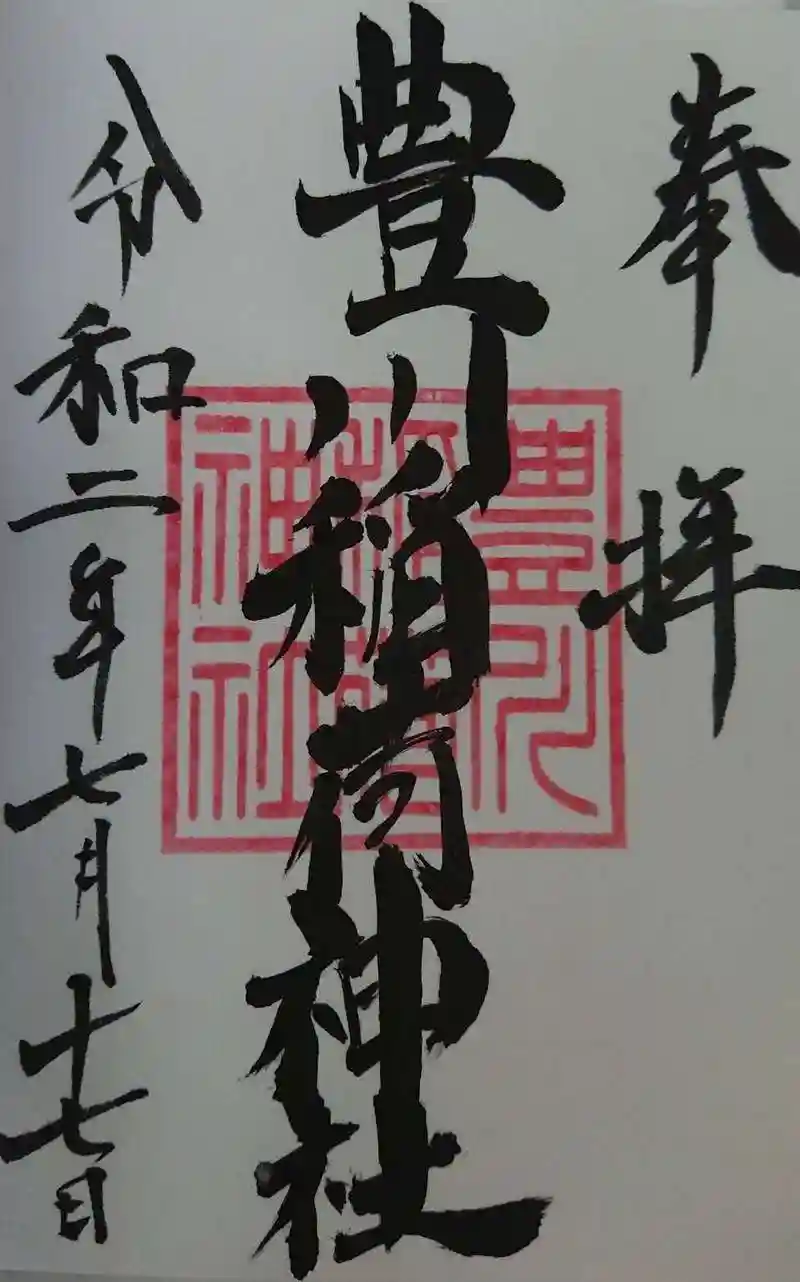 奉拝
豊川稲荷神社
豊川稲荷神社
令和二年七月十七日